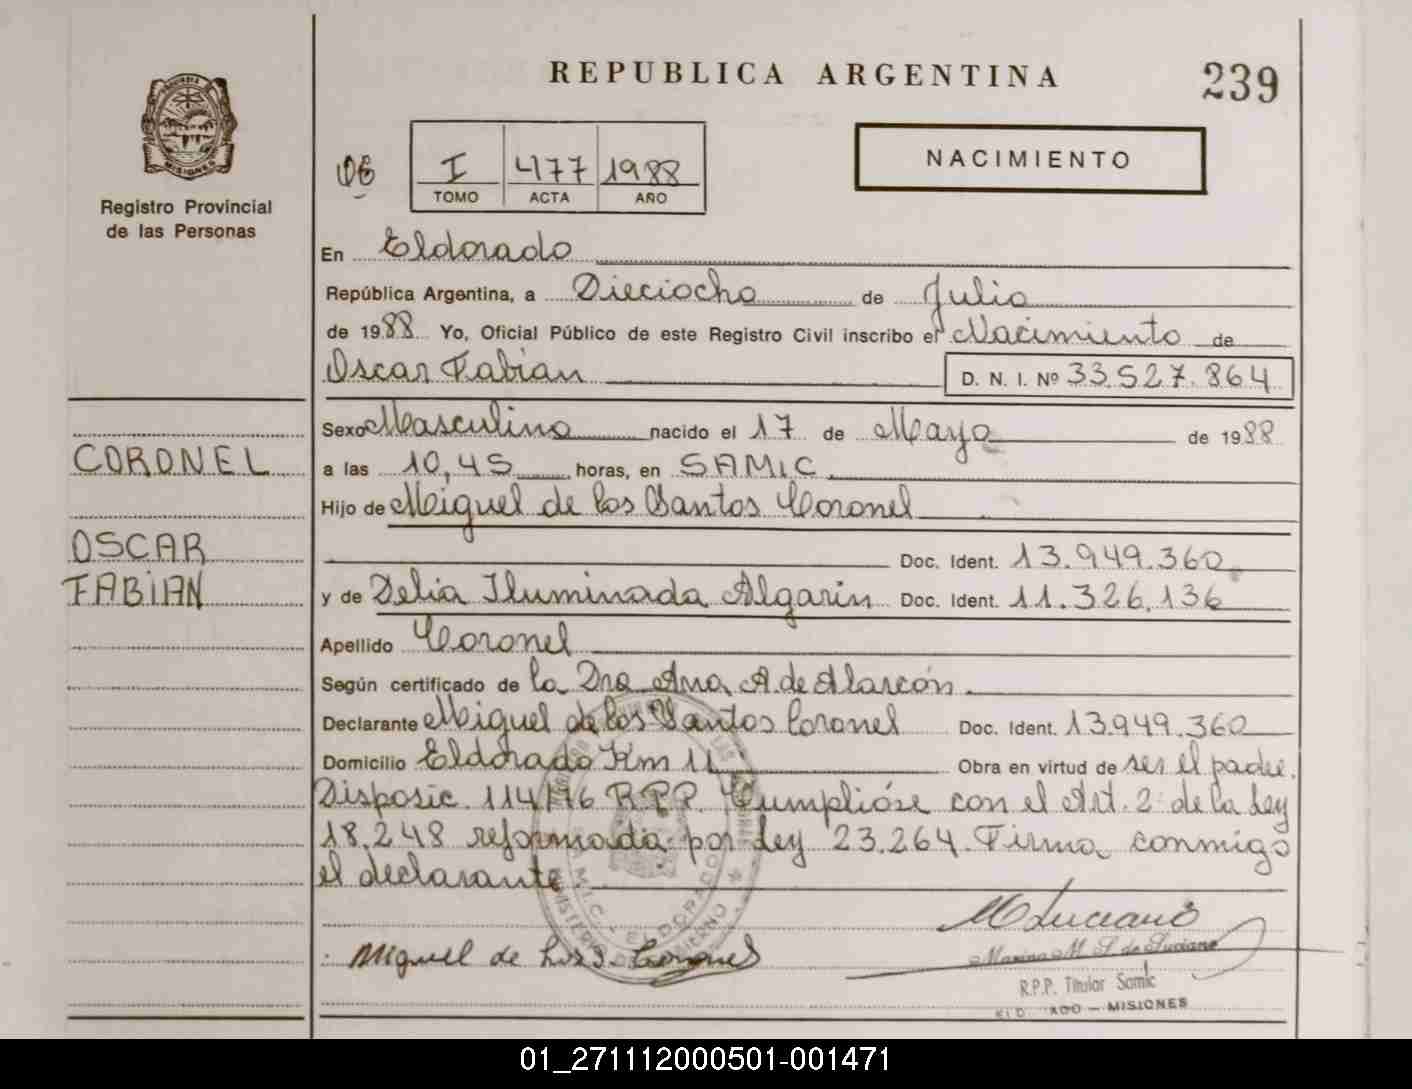 REPUBLICA ARGENTINA
239
MISIONES
Registro Provincial
de las Personas
I 477 1988
TOMO ACTA AÑO
NACIMIENTO
En Eldorado
República Argentina, a Dieciocho de Julio
de 1988 Yo, Oficial Público de este Registro Civil inscribo el Nacimiento de
Oscar Fabián D. N. I. Nº 33.527.864
Sexo Masculino nacido el 17 de Mayo de 1988
CORONEL
a las 10,45 horas, en SAMIC
Hijo de Miguel de los Santos Coronel
OSCAR
Doc. Ident. 13.949.360
FABIAN
y de Delia Iluminada Algarin Doc. Ident. 11.326.136
Apellido Coronel
Según certificado de la Dra Ana A. de Alarcón
Declarante Miguel de los Santos Coronel Doc. Ident. 13.949.360
Domicilio Eldorado Km 11 Obra en virtud de ser el padre.
Disposic. 114/76 R.P.P. Cumplióse con el Art. 2 de la Ley
18.248 reformada por Ley 23.264. Firma conmigo
el declarante
M Luciano
Miguel de los S. Coronel
Marina M. S. de Luciano
R.P.P. Titular Samic
ELDORADO - MISIONES
01_271112000501-001471